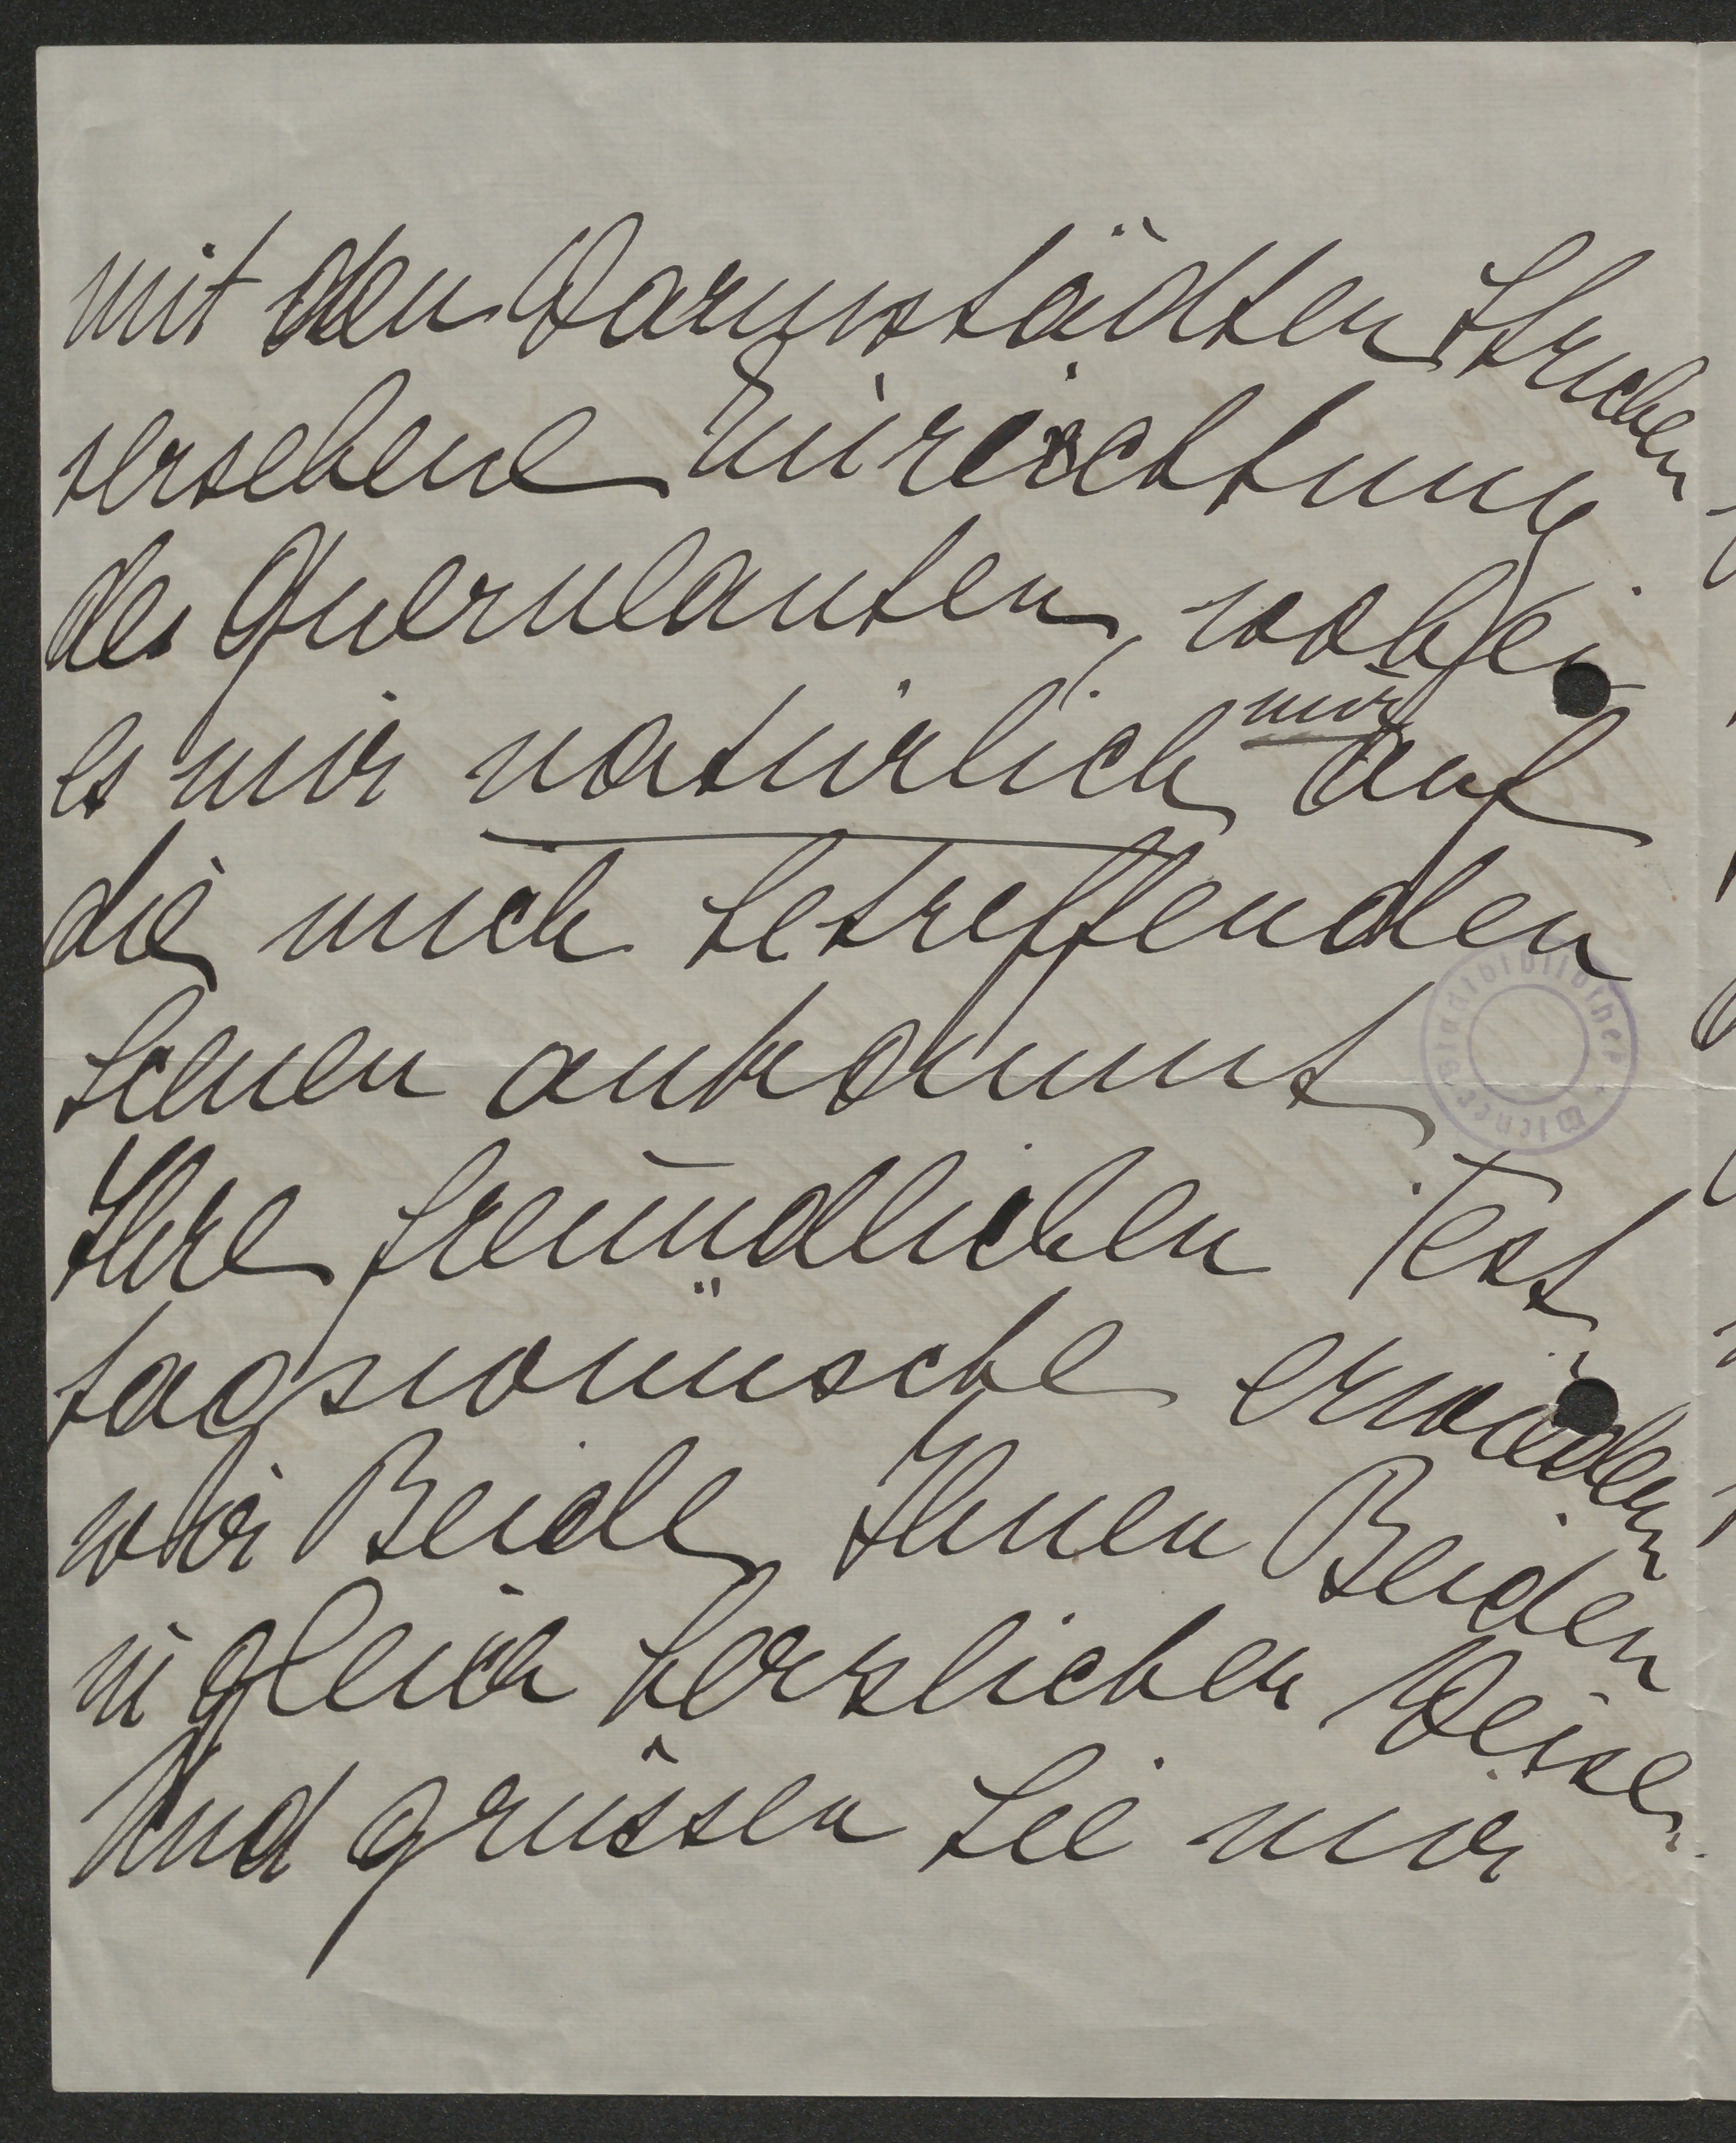 mit den Darmstädter Strichen
versehene Einrichtung
des Querulanten, wobei
es mir natürlich nur auf
die mich betreffenden
Scenen ankommt
Ihre freundlichen Fest
tagswünsche erwiedern
wir Beide Ihnen Beiden
in gleich herzlicher Weise.
Und grüssen Sie mir
Wiener Stadtbibliothek